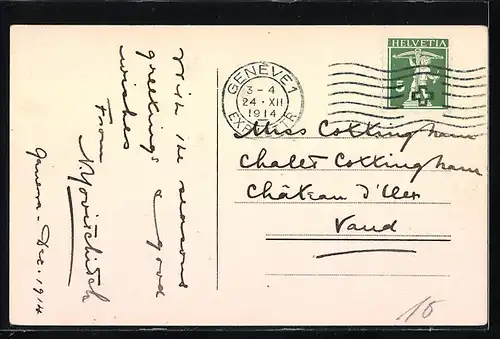 With the seasons
greetings & good
wishes
From
Geneva - Dec. 1914
GENÈVE 1
3 - 4
24 · XII
1914
HELVETIA
5
Miss Cottingham
Chalet Cottingham
Château d'Oex
Vaud
15